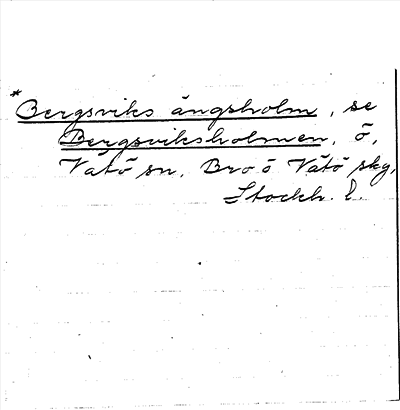 *Bergsviks ängsholm, se
Bergsviksholmen, ö,
Vätö sn, Bro o Vätö skg,
Stockh. l.